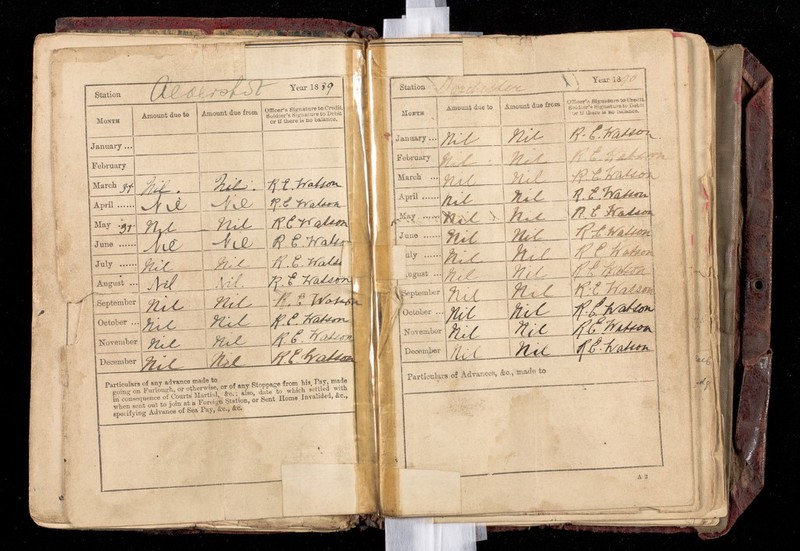 Station Aldershot Year 1889
MONTH Amount due to Amount due from Officer's Signature to Credit, Soldier's Signature to Debit or if there is no balance.
January ...
February
March 31 Nil. Nil. R. E. Watson
April ...... Nil Nil R. E. Watson
May 31 Nil Nil R E Watson
June ...... Nil Nil R. E. Watso
July ...... Nil Nil R. E. Wats
August ... Nil Nil R. E. Watson
September Nil Nil R. E. Watson
October ... Nil Nil R. E. Watson
November Nil Nil R. E. Watson
December Nil Nil R. E. Watson
Particulars of any advance made to
going on Furlough, or otherwise, or of any Stoppage from his Pay, made
in consequence of Courts Martial, &c.; also, date to which settled with
when sent out to join at a Foreign Station, or Sent Home Invalided, &c.,
specifying Advance of Sea Pay, &c., &c.
Station Year 1890
MONTH Amount due to Amount due from Officer's Signature to Credit, Soldier's Signature to Debit or if there is no balance.
January ... Nil Nil R. E. Watson
February Nil Nil R. E. Watson
March ... Nil Nil R E Watson
April ...... Nil Nil R. E. Watson
May ...... Nil Nil R. E. Watson
June ...... Nil Nil R. E. Watson
uly ...... Nil Nil R E Watson
ugust ... Nil Nil R E Watson
September Nil Nil R. E. Watson
October ... Nil Nil R. E. Watson
November Nil Nil R. E. Watson
December Nil Nil R. E. Watson
Particulars of Advances, &c., made to
A 3